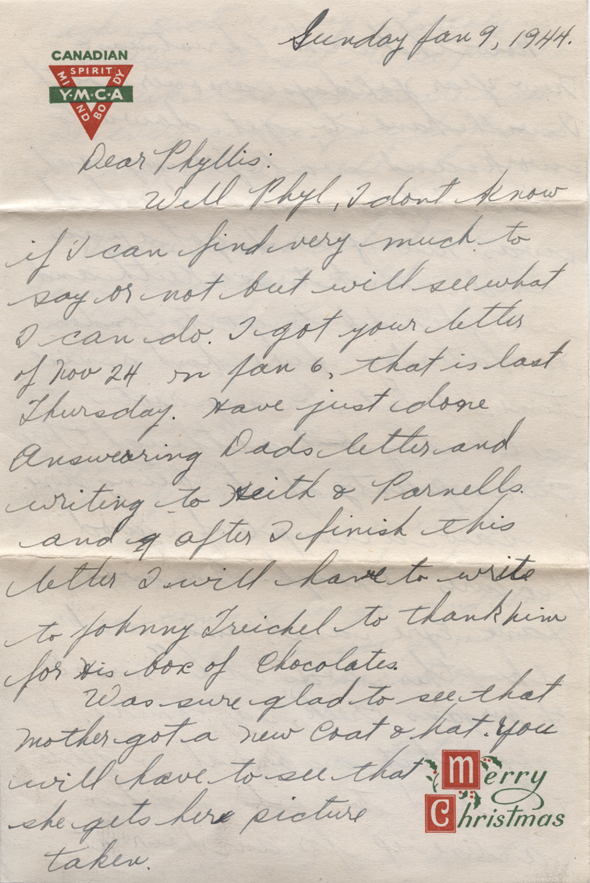 Sunday Jan 9, 1944.
CANADIAN
SPIRIT
MIND BODY
Y·M·C·A
Dear Phyllis:
Well Phyl, I dont know
if I can find very much to
say or not but will see what
I can do. I got your letter
of Nov 24 on Jan 6, that is last
Thursday. Have just done
Answering Dads letter and
writing to Keith & Parnells.
and after I finish this
letter I will have to write
to Johnny Treichel to thank him
for His box of Chocolates.
Was sure glad to see that
Mother got a new Coat & hat. You
will have to see that
she gets here picture
taken.
Merry
Christmas